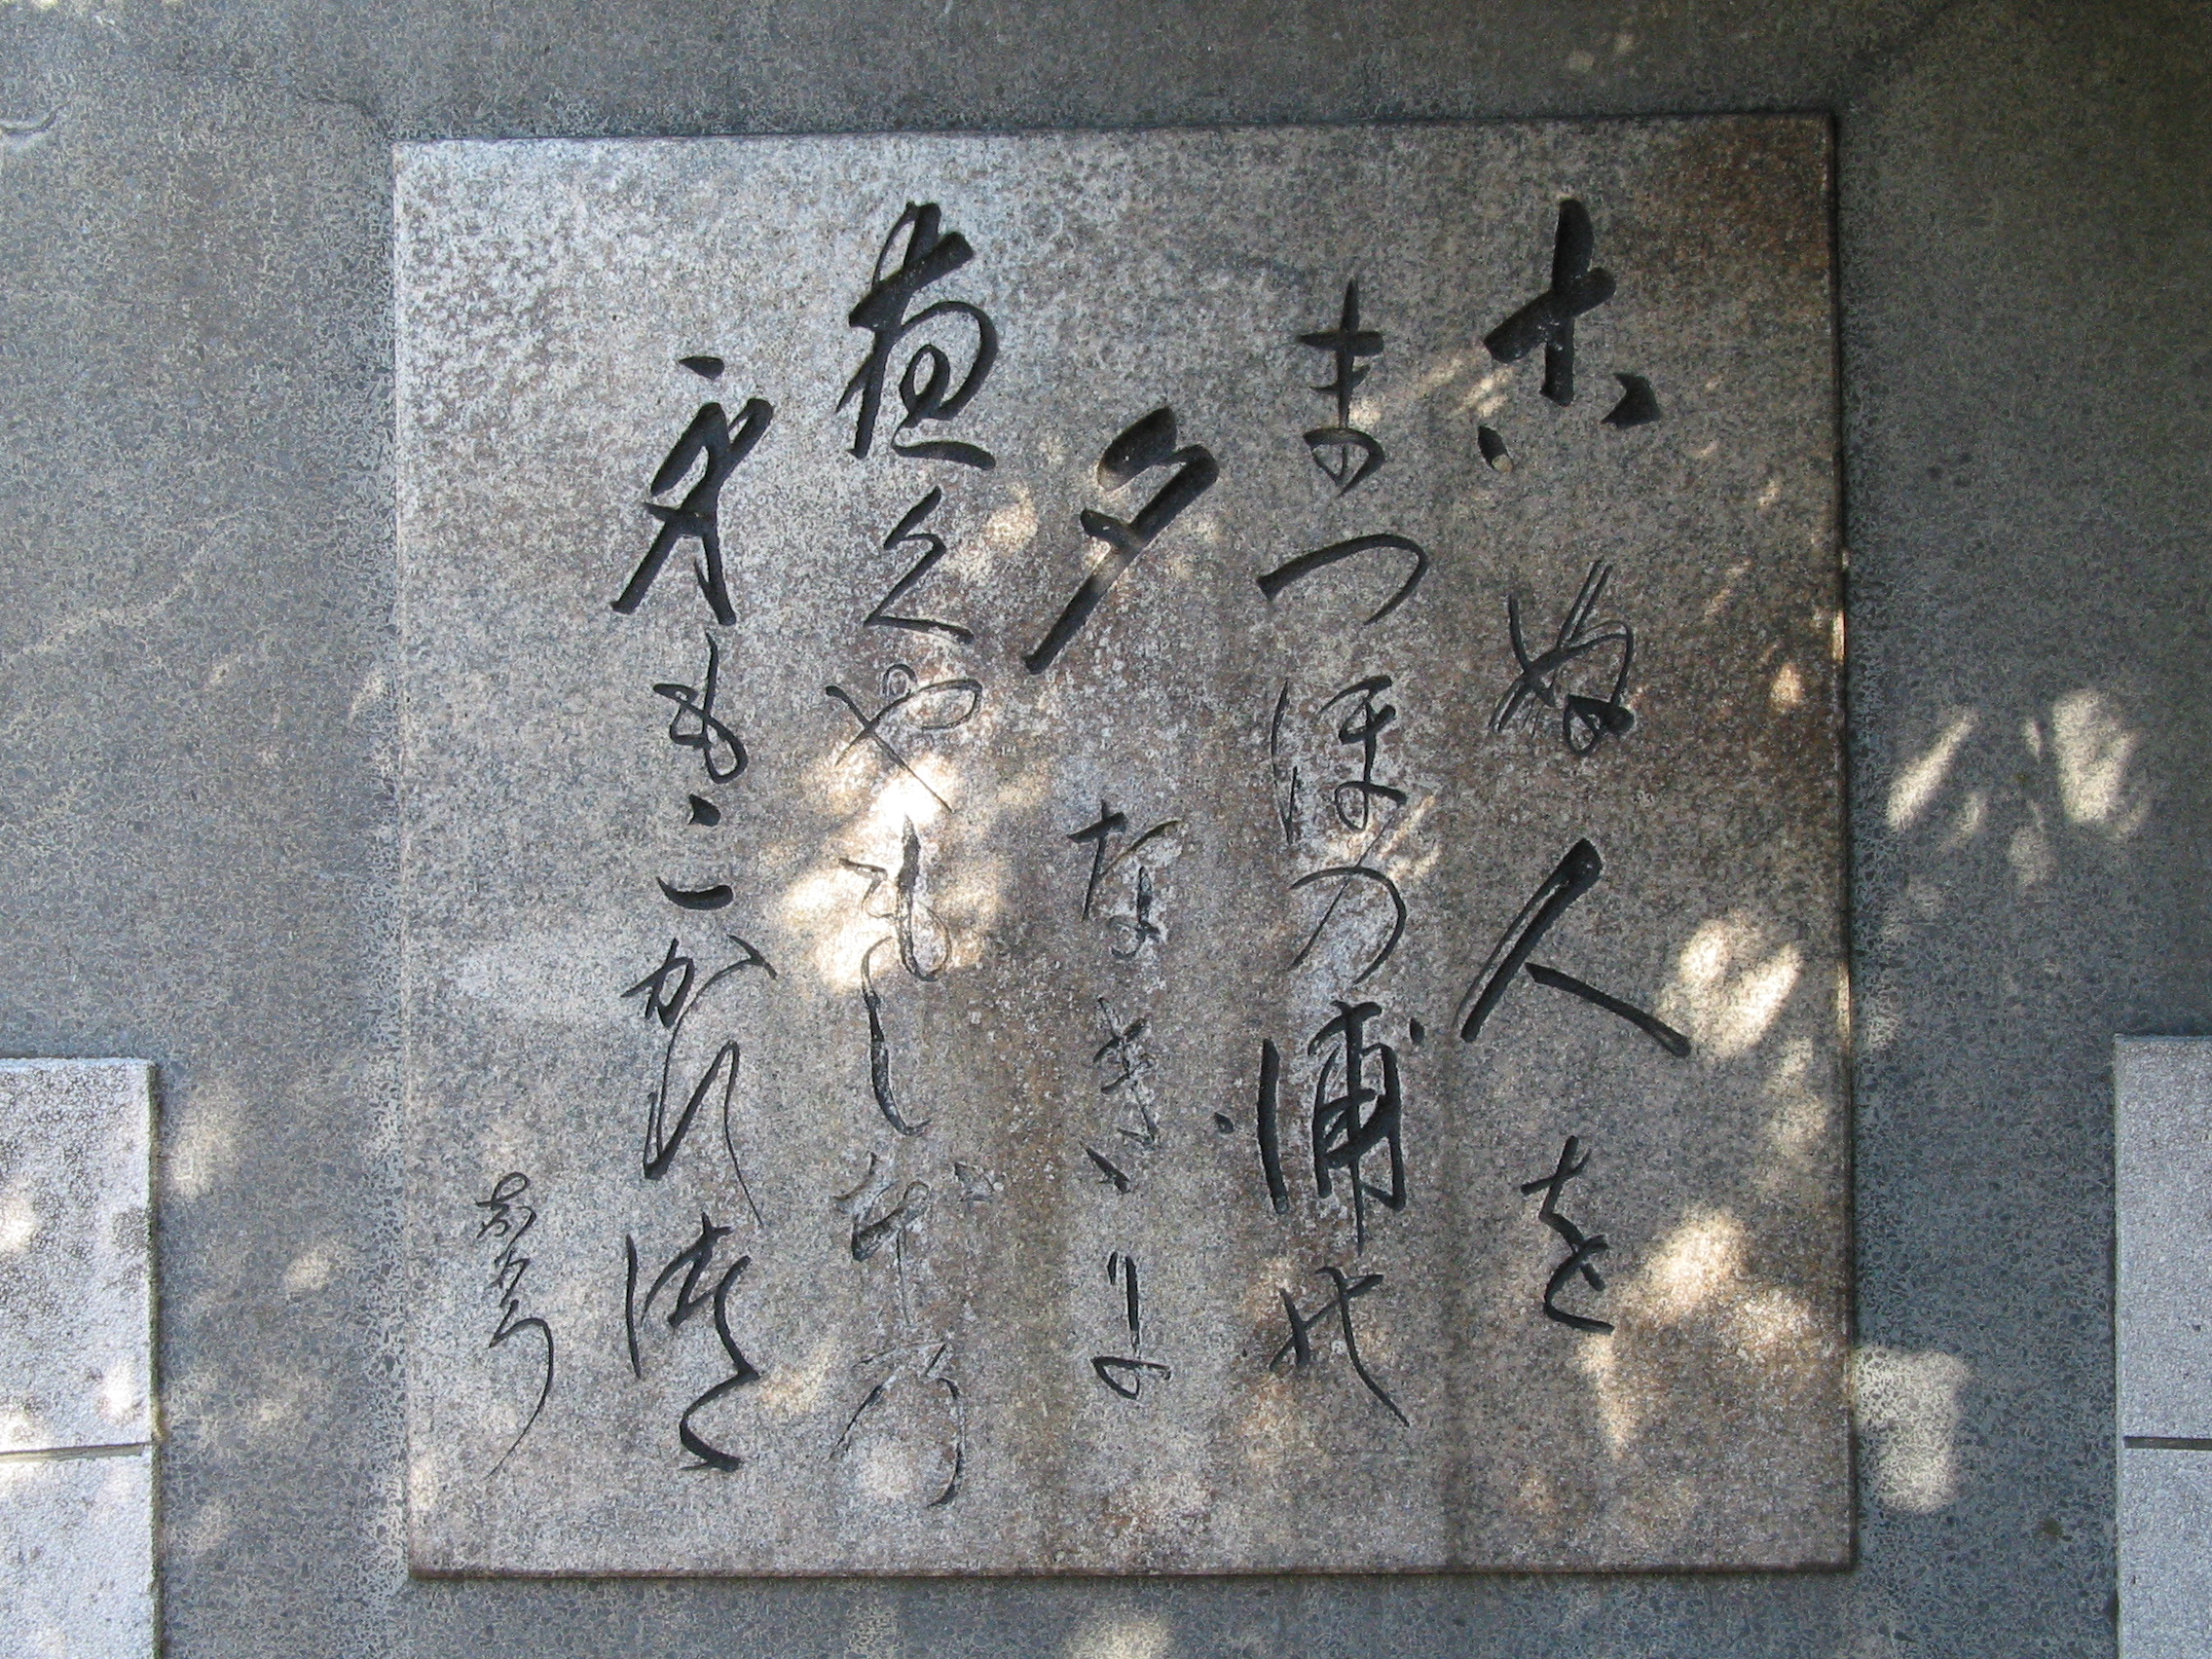 来ぬ人を
まつほの浦の
夕なぎに
焼くやもしほの
身もこがれつゝ